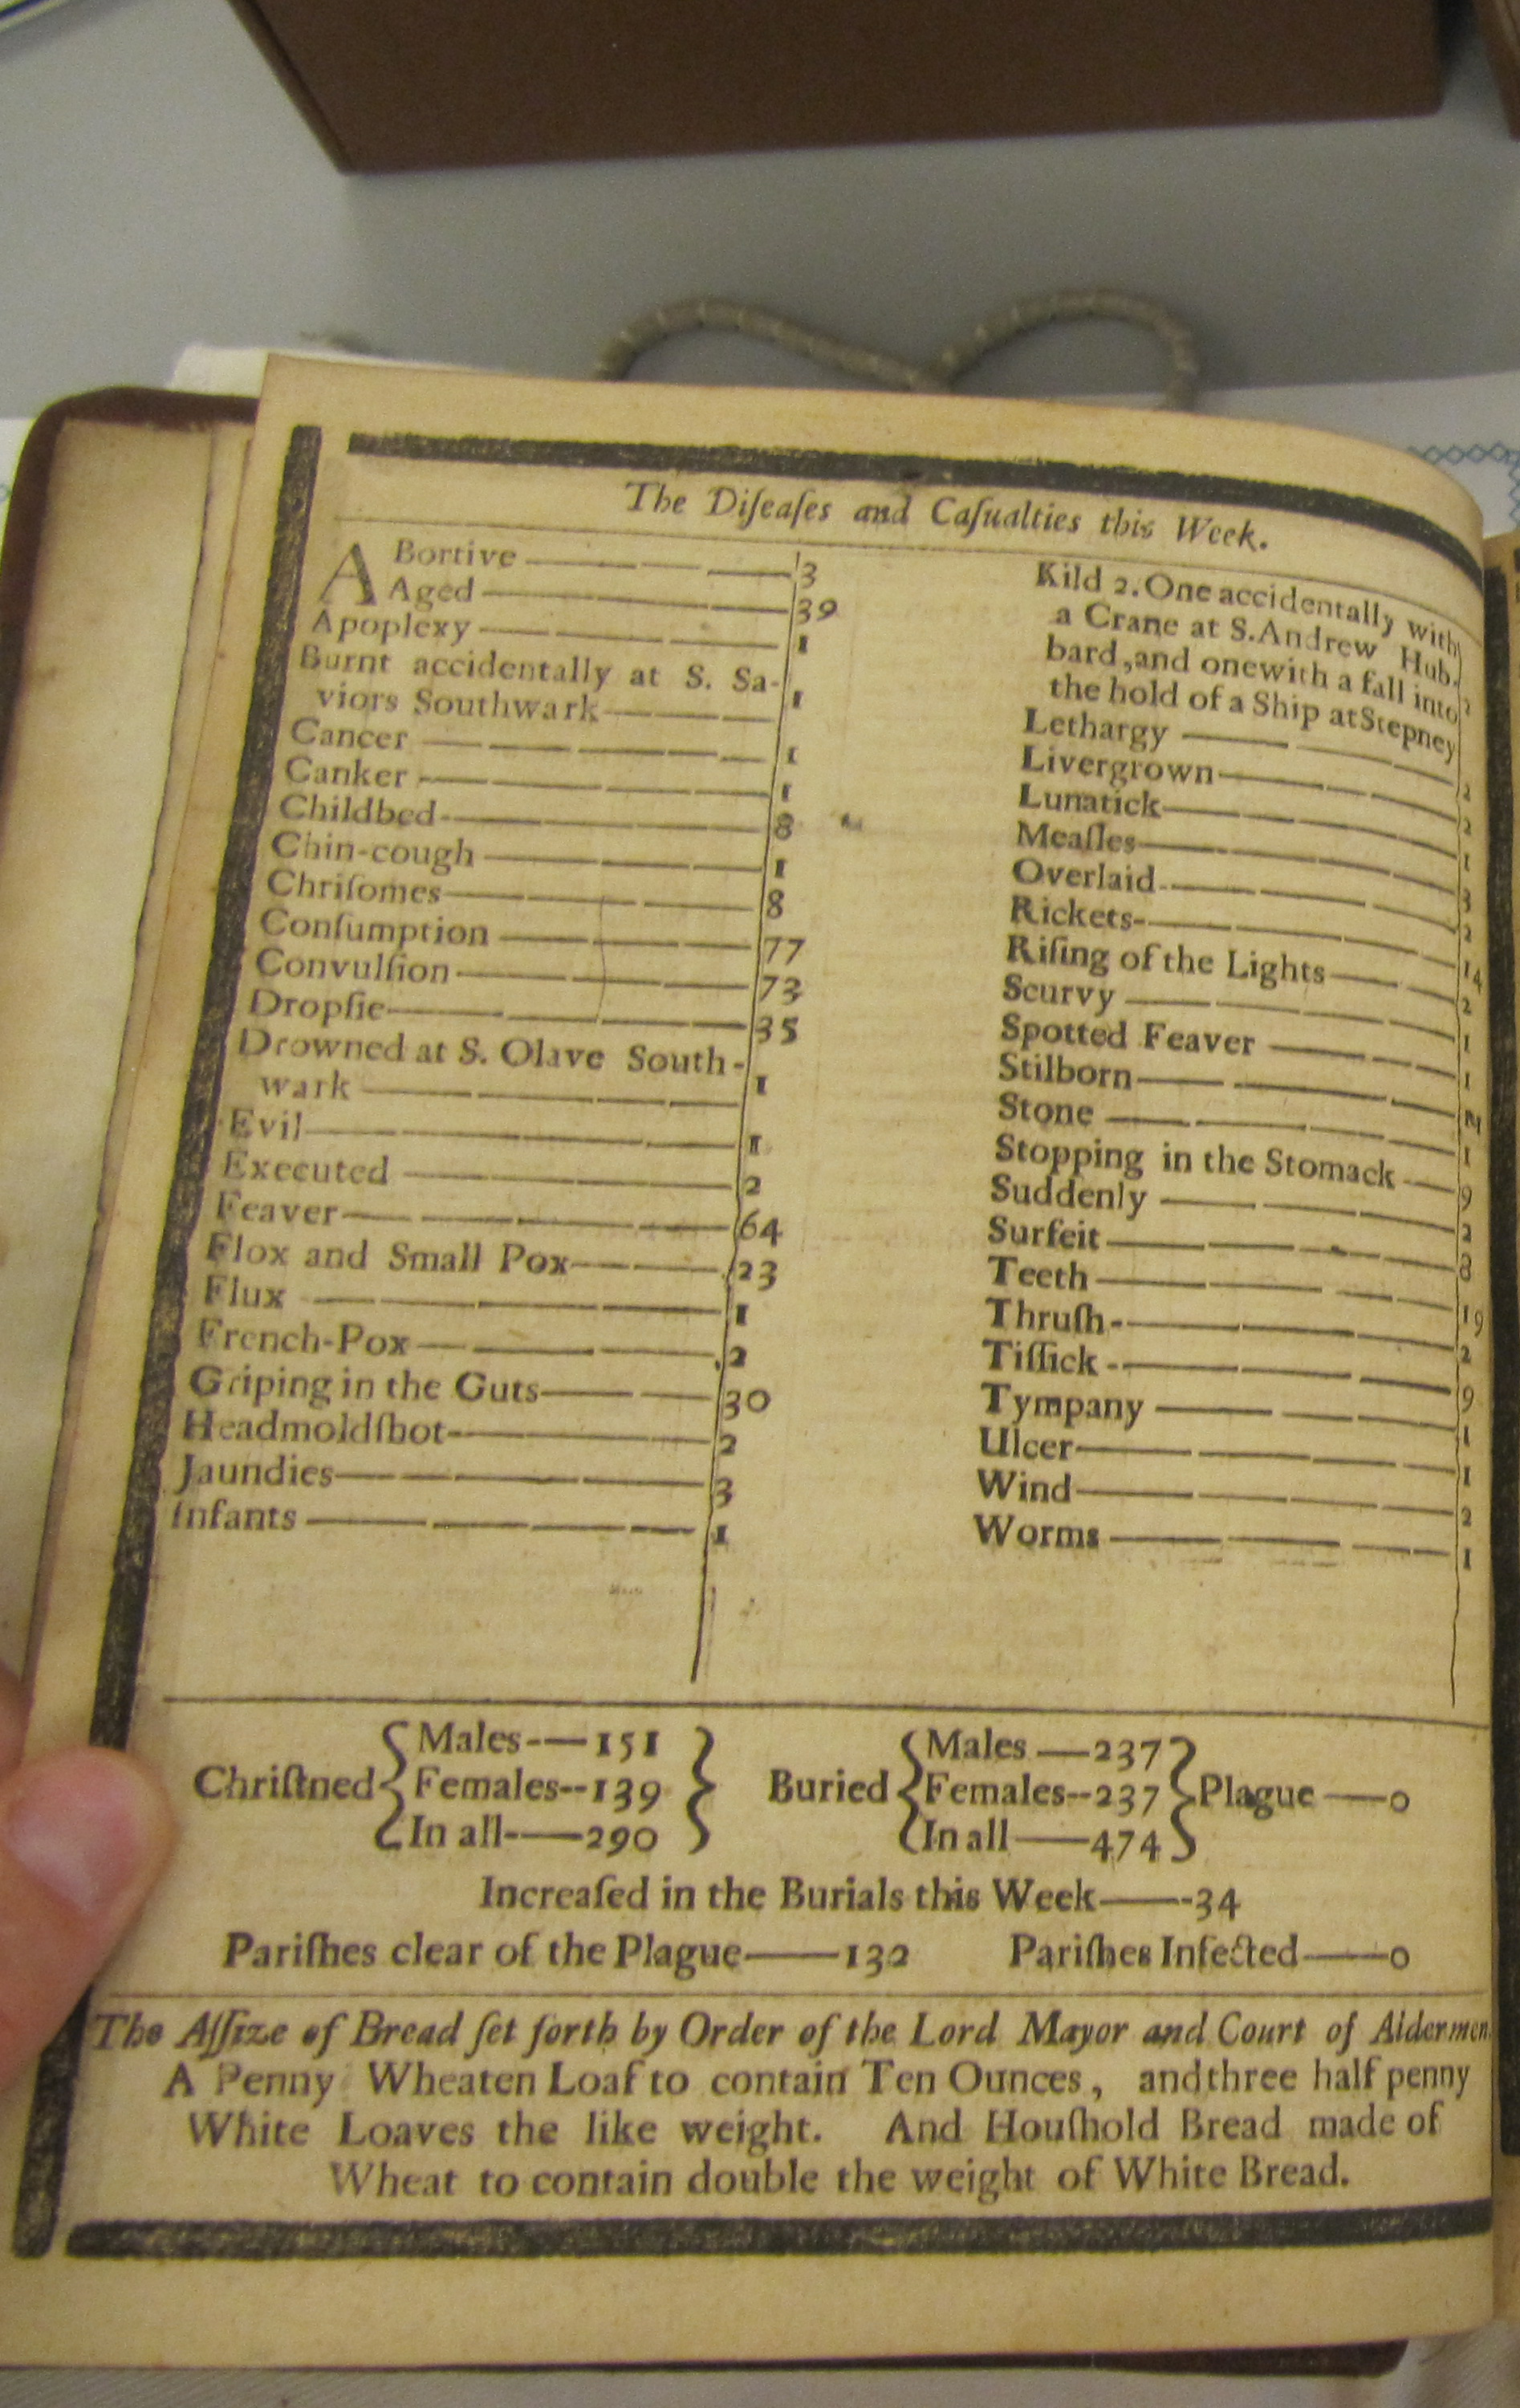 The Diſeaſes and Caſualties this Week.
ABortive 3
Aged 39
Apoplexy 1
Burnt accidentally at S. Sa-
viors Southwark 1
Cancer 1
Canker 1
Childbed 8
Chin-cough 1
Chriſomes 8
Conſumption 77
Convulſion 73
Dropſie 35
Drowned at S. Olave South-
wark 1
Evil 1
Executed 2
Feaver 64
Flox and Small Pox 23
Flux 1
French-Pox 2
Griping in the Guts 30
Headmoldſhot 2
Jaundies 3
Infants 1
Kild 2. One accidentally with
a Crane at S. Andrew Hub-
bard, and one with a fall into
the hold of a Ship at Stepney 2
Lethargy 2
Livergrown 2
Lunatick 1
Meaſles 3
Overlaid 2
Rickets 14
Riſing of the Lights 2
Scurvy 1
Spotted Feaver 1
Stilborn 11
Stone 1
Stopping in the Stomack 9
Suddenly 2
Surfeit 8
Teeth 19
Thruſh 2
Tiſſick 9
Tympany 1
Ulcer 1
Wind 2
Worms 1
Chriſtned Males 151 Females 139 In all 290
Buried Males 237 Females 237 In all 474 Plague 0
Increaſed in the Burials this Week 34
Pariſhes clear of the Plague 132 Pariſhes Infected 0
The Aſſize of Bread ſet forth by Order of the Lord Mayor and Court of Aldermen.
A Penny Wheaten Loaf to contain Ten Ounces, and three half penny
White Loaves the like weight. And Houſhold Bread made of
Wheat to contain double the weight of White Bread.